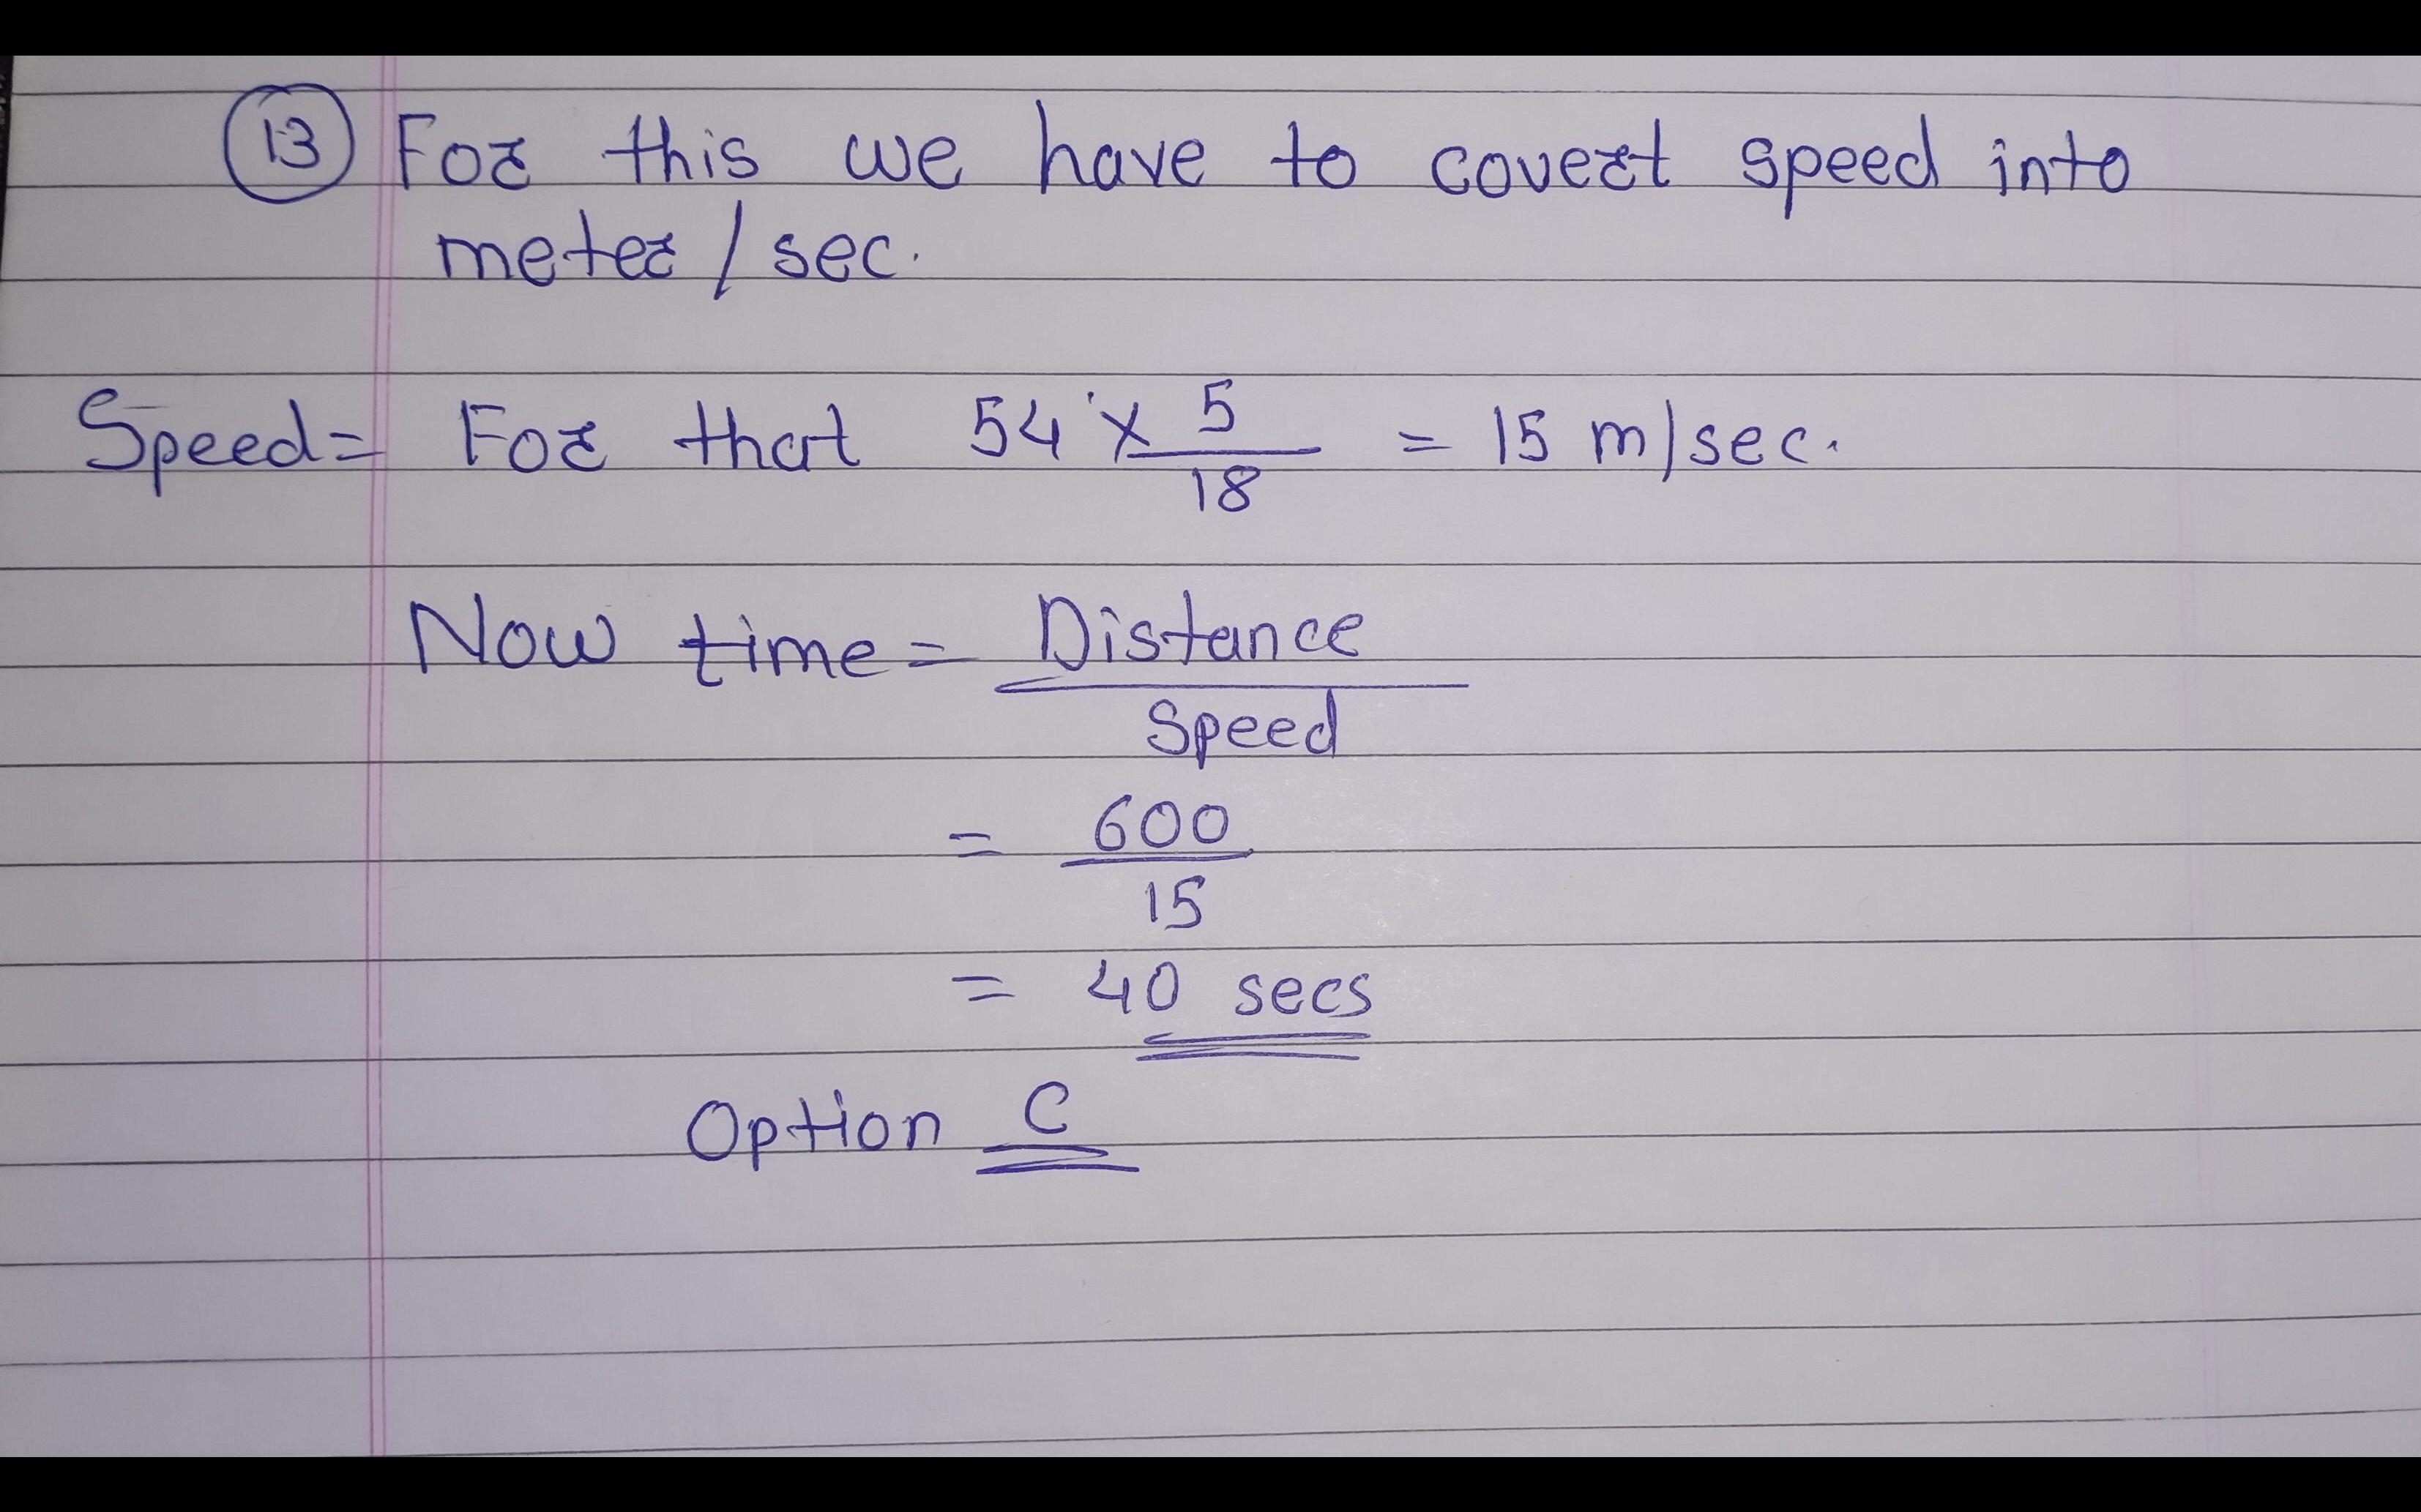 13 For this we have to covert speed into
meter / sec.
Speed = For that 54 × 5/18 = 15 m/sec.
Now time = Distance
Speed
= 600
15
= 40 secs
Option C